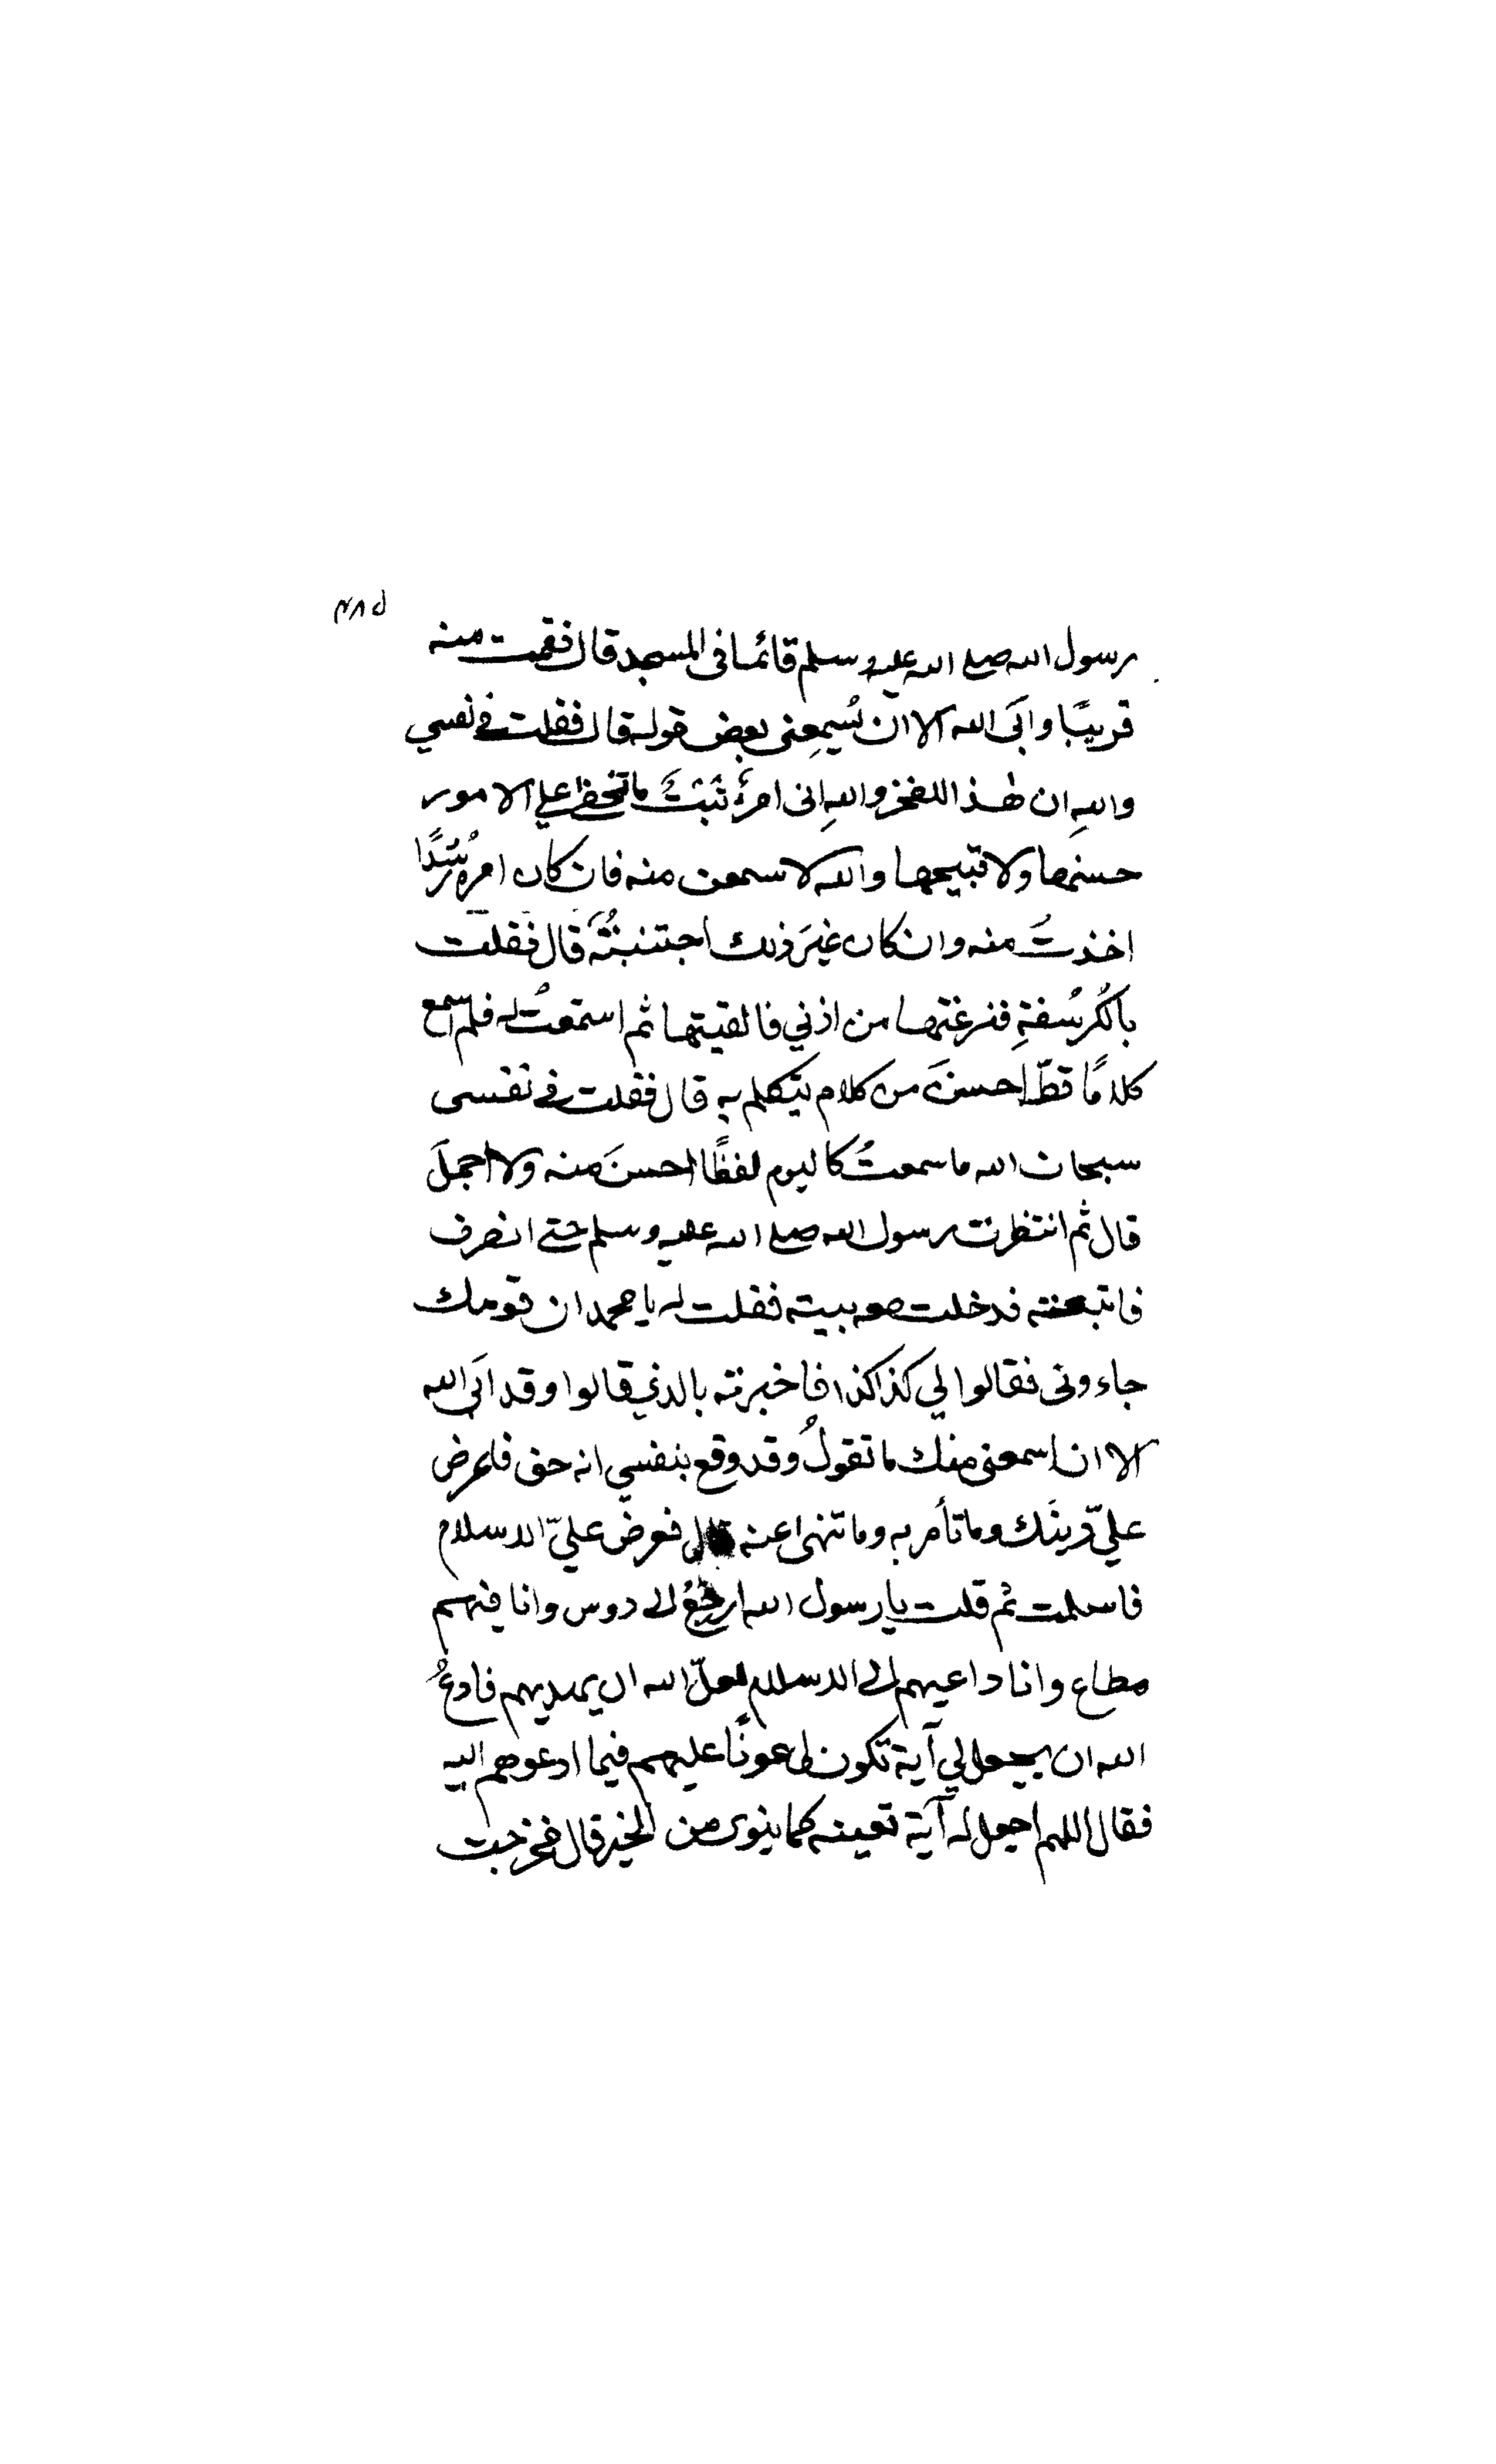 رسول الله صلى الله عليه وسلم قائما فى المسجد قال فقمت منه
قريبًا وابَى الله الا ان يُسمِعنى بعض قوله قال فقلت فى نفسي
واللهِ ان هذا للعجز واللهِ انى امرؤ ثَبتٌ ما تخفى على الامور
حسنها ولا قبيحها والله لاسمعن منه فان كان امره رُشدًا
اخذتُ منه وان كان غيرَ ذلك اجتنبتُه قال فقلت
بالكُرسُفةِ فنزعتها من اذني فالقيتها ثم استمعتُ له فلم اسمع
كلامًا قطّ احسنَ من كلام يتكلم به قال فقلت فى نفسى
سبحان الله ما سمعتُ كاليوم لفظًا احسنَ منه ولا اجملَ
قال ثم انتظرت رسول الله صلى الله عليه وسلم حتى انصرف
فاتبعته فدخلت معه بيته فقلت له يا محمد ان قومك
جاءونى فقالوا لي كذا كذا فاخبرته بالذي قالوا وقد ابَى الله
الا ان اسمعنى منك ما تقولُ وقد وقع بنفسي انه حق فاعرض
عليّ دينَك وما تأمر به وما تنهى عنه قال فعرض عليّ الاسلام
فاسلمت ثم قلت يا رسول الله ارجعُ الى دوس وانا فيهم
مطاع وانا داعيهم الى الاسلام لعلّ الله ان يهديهم فادعُ
الله ان يجعل لي آية تكون لى عونًا عليهم فيما ادعوهم اليه
فقال اللهم اجعل له آية تعينه كما ينوى من الخير قال فخرجت